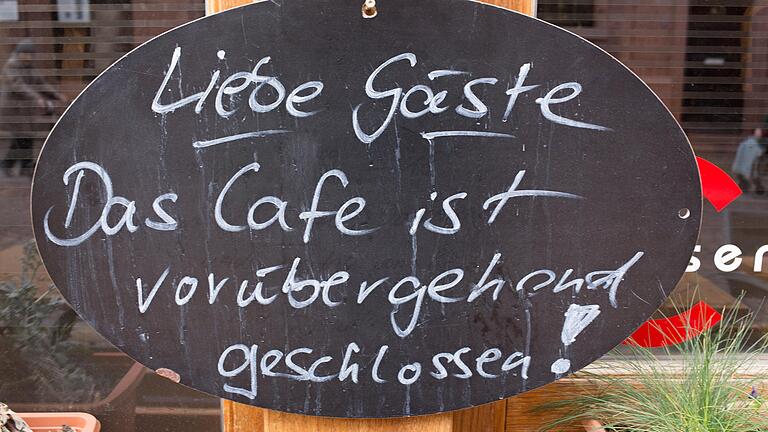 Liebe Gäste
Das Cafe ist
vorübergehend
geschlossen!
ser